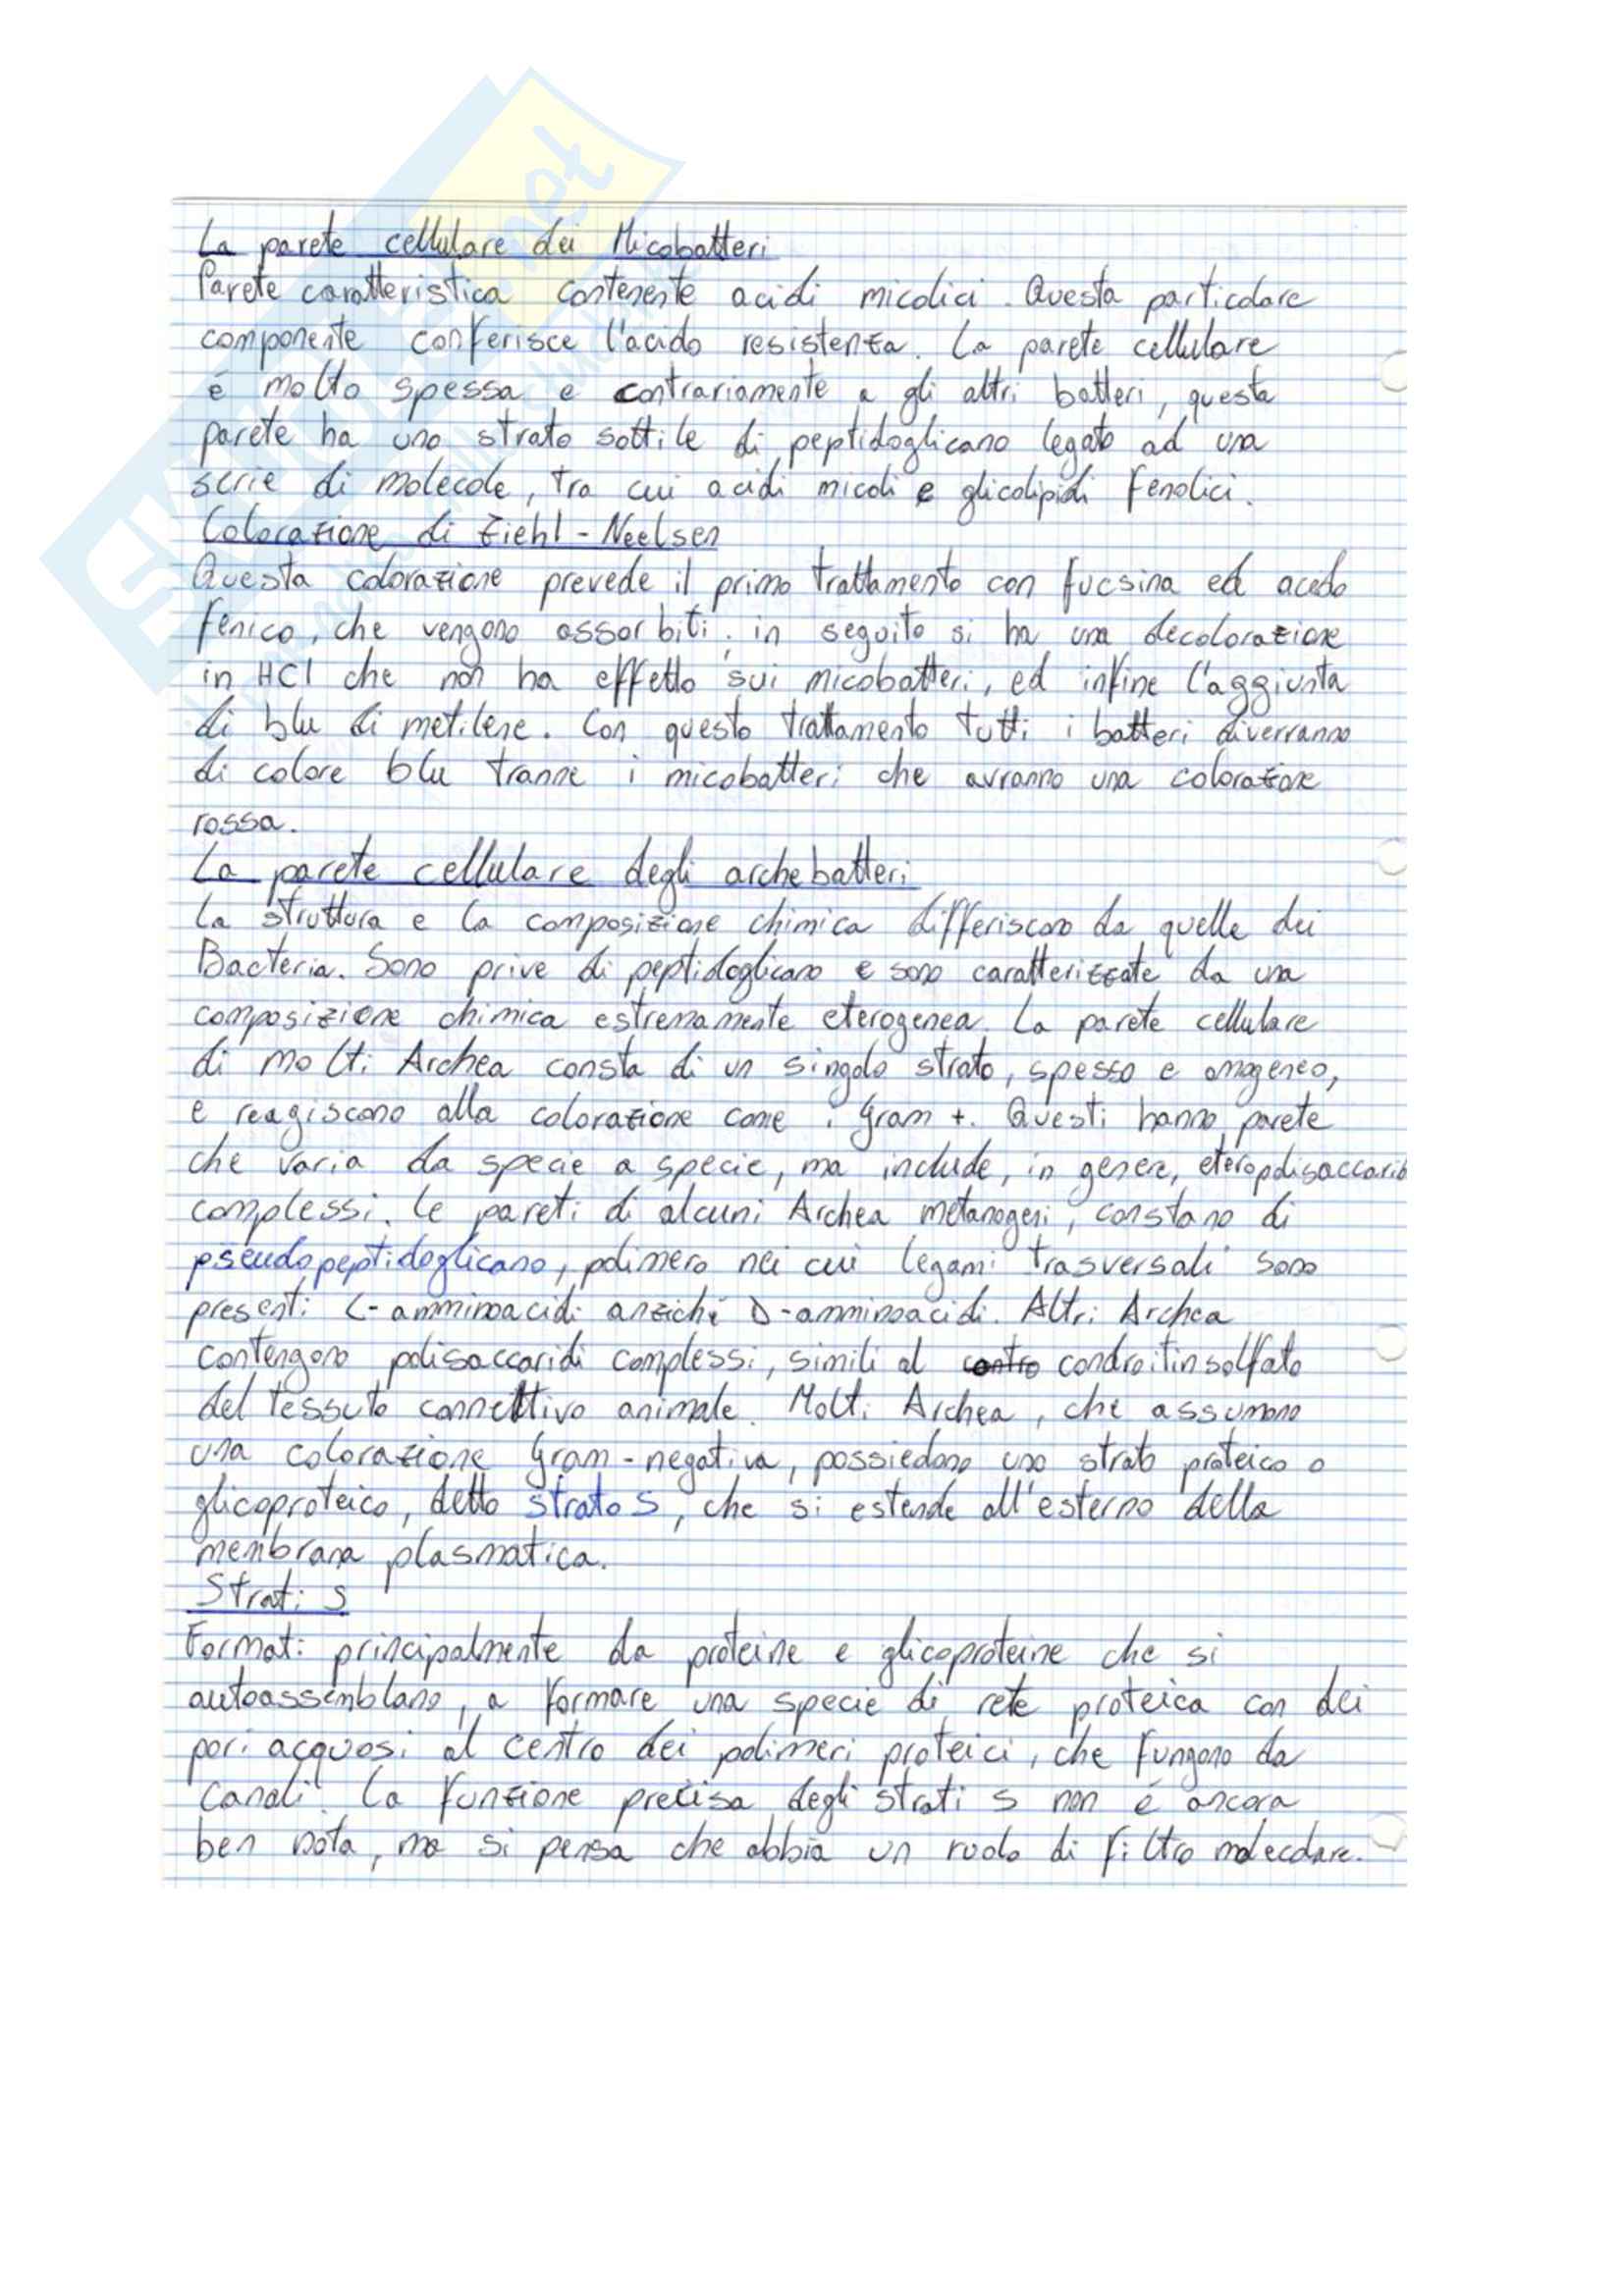 La parete cellulare dei Micobatteri
Parete caratteristica contenente acidi micolici. Questa particolare
componente conferisce l'acido resistenza. La parete cellulare
é molto spessa e contrariamente a gli altri batteri, questa
parete ha uno strato sottile di peptidoglicano legato ad una
serie di molecole, tra cui acidi micoli e glicolipidi fenolici.
Colorazione di Ziehl-Neelsen
Questa colorazione prevede il primo trattamento con fucsina ed acido
fenico, che vengono assorbiti; in seguito si ha una decolorazione
in HCl che non ha effetto sui micobatteri, ed infine l'aggiunta
di blu di metilene. Con questo trattamento tutti i batteri diverranno
di colore blu tranne i micobatteri che avranno una colorazione
rossa.
La parete cellulare degli archebatteri
La struttura e la composizione chimica differiscono da quelle dei
Bacteria. Sono prive di peptidoglicano e sono caratterizzate da una
composizione chimica estremamente eterogenea. La parete cellulare
di molti Archea consta di un singolo strato, spesso e omogeneo,
e reagiscono alla colorazione come i Gram +. Questi hanno parete
che varia da specie a specie, ma include, in genere, eteropolisaccarib
complessi. Le pareti di alcuni Archea metanogeni, constano di
pseudopeptidoglicano, polimero nei cui legami trasversali sono
presenti L-amminoacidi anziché D-amminoacidi. Altri Archea
contengono polisaccaridi complessi, simili al contro condroitinsolfato
del tessuto connettivo animale. Molti Archea, che assumono
una colorazione Gram-negativa, possiedono uno strato proteico o
glicoproteico, detto strato S, che si estende all'esterno della
membrana plasmatica.
Strati S
Formati principalmente da proteine e glicoproteine che si
autoassemblano, a formare una specie di rete proteica con dei
pori acquosi al centro dei polimeri proteici, che fungono da
canali. La funzione precisa degli strati S non é ancora
ben nota, ma si pensa che abbia un ruolo di filtro molecolare.